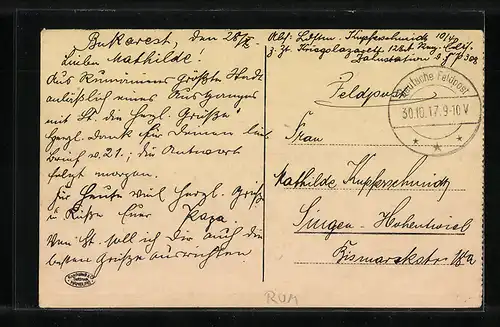 Bukarest, den 28/X.
Lieben Mathilde!
Aus Rumäniens größte Stadt
anläßlich eines Ausganges
mit St. die herzl. Grüße
Herzl. Dank für Deinen lieb.
Brief v. 21.; die Antwort
folgt morgen.
Für heute viel herzl. Grüße
u. Küße Euer Papa.
Von St. soll ich Dir auch die
besten Grüße ausrichten
Abs: Kupferschmidt
z. Zt. Kriegslazarett
Zahnstation
Feldpost
Deutsche Feldpost
30.10.17.9-10V
Frau
Mathilde Kupferschmidt
Singen-Hohentwiel
Bismarckstr.
RUM